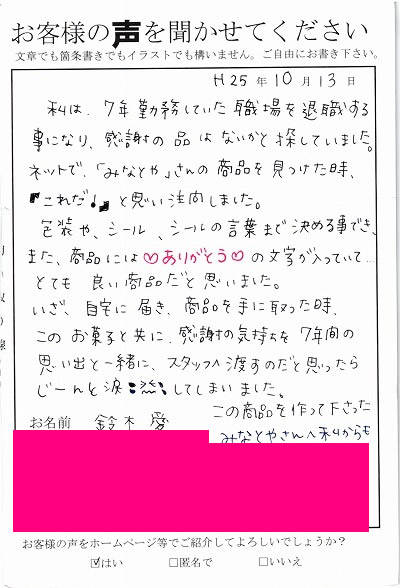 お客様の声を聞かせてください
文章でも箇条書きでもイラストでも構いません。ご自由にお書き下さい。
H25年10月13日
私は、7年勤務していた職場を退職する
事になり、感謝の品はないかと探していました。
ネットで、「みなとや」さんの商品を見つけた時、
『これだ!』と思い注文しました。
包装や、シール、シールの言葉まで決める事ができ、
また、商品には♡ありがとう♡の文字が入っていて…
とても良い商品だと思いました。
いざ、自宅に届き、商品を手に取った時、
このお菓子と共に、感謝の気持ちを7年間の
思い出と一緒に、スタッフへ渡すのだと思ったら
じーんと涙してしまいました。
この商品を作って下さった
お名前 鈴木 愛
みなとやさんへ私からも
お客様の声をホームページ等でご紹介してよろしいでしょうか?
☑はい □匿名で □いいえ